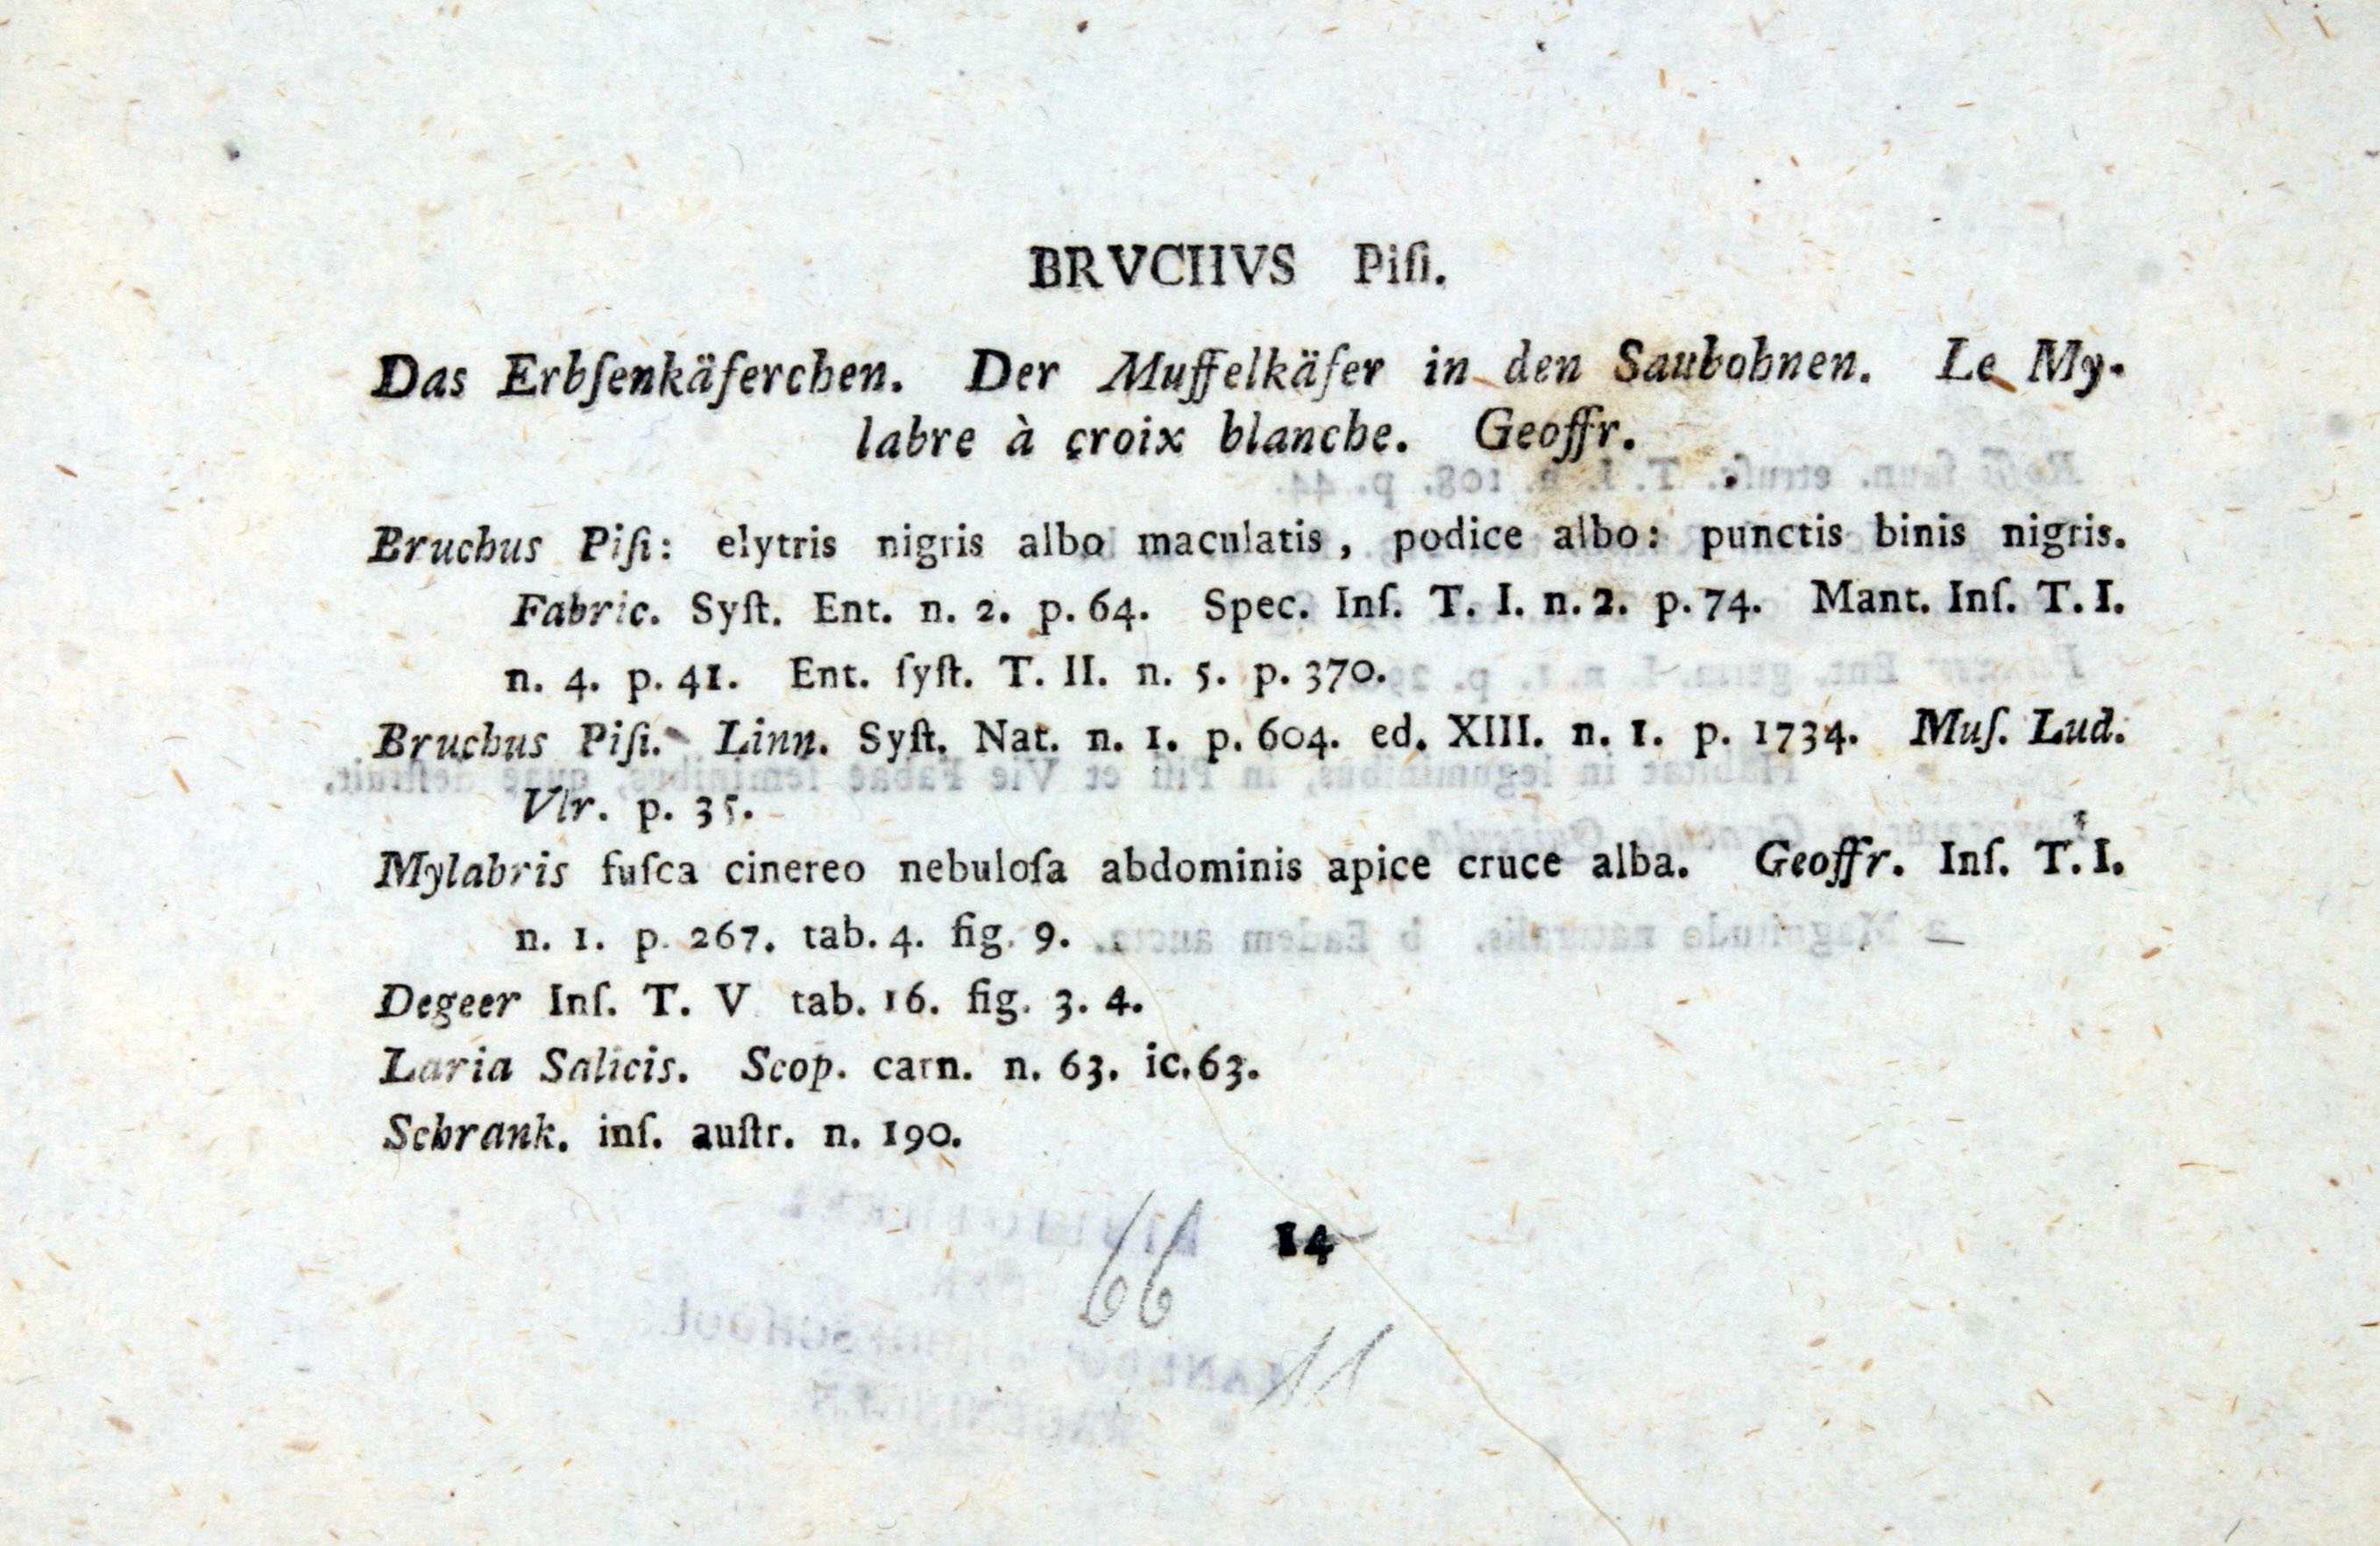 BRVCHVS Piſi.
Das Erbſenkäferchen. Der Muffelkäfer in den Saubohnen. Le My-
labre à croix blanche. Geoffr.
Bruchus Piſi: elytris nigris albo maculatis, podice albo: punctis binis nigris.
Fabric. Syſt. Ent. n. 2. p. 64. Spec. Inſ. T. I. n. 2. p. 74. Mant. Inſ. T. I.
n. 4. p. 41. Ent. ſyſt. T. II. n. 5. p. 370.
Bruchus Piſi. Linn. Syſt. Nat. n. 1. p. 604. ed. XIII. n. 1. p. 1734. Muſ. Lud.
Vlr. p. 35.
Mylabris fuſca cinereo nebuloſa abdominis apice cruce alba. Geoffr. Inſ. T. I.
n. 1. p. 267. tab. 4. fig. 9.
Degeer Inſ. T. V tab. 16. fig. 3. 4.
Laria Salicis. Scop. carn. n. 63. ic. 63.
Schrank. inſ. auſtr. n. 190.
14
66
11